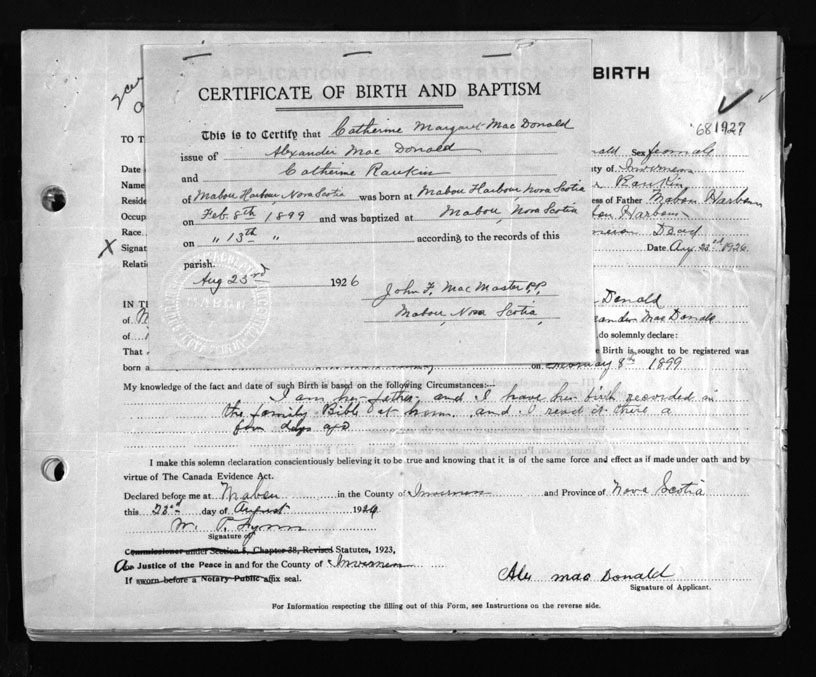 BIRTH
CERTIFICATE OF BIRTH AND BAPTISM
681927
This is to Certify that Catherine Margaret MacDonald
issue of Alexander Mac Donald
and Catherine Rankin
of Mabou Harbour, Nova Scotia was born at Mabou Harbour, Nova Scotia
on Feb. 8th 1899 and was baptized at Mabou, Nova Scotia
on " 13th " according to the records of this
parish.
Aug 23rd 1926
John F. MacMaster P.P.
Mabou, Nova Scotia,
TO T
Date
Name
Reside
Occup
Race
X Signat
Relati
nald Sex female
ty of Inverness
Rankin
ess of Father Mabou Harbour
Harbour
Dead
Date Aug 23rd 1926
IN T
of M
of
That
born a
Donald
ander Mac Donald
do solemnly declare:
e Birth is sought to be registered was
on February 8th 1899
My knowledge of the fact and date of such Birth is based on the following Circumstances:—
I am her father and I have her birth recorded in
the family Bible at home and I read it there a
few days ago
I make this solemn declaration conscientiously believing it to be true and knowing that it is of the same force and effect as if made under oath and by
virtue of The Canada Evidence Act.
Declared before me at Mabou in the County of Inverness and Province of Nova Scotia
this 23rd day of August 1926
W. P.
Signature of
Commissioner under Section 5, Chapter 38, Revised Statutes, 1923,
Justice of the Peace in and for the County of Inverness
If sworn before a Notary Public affix seal.
Alex Mac Donald
Signature of Applicant.
For Information respecting the filling out of this Form, see Instructions on the reverse side.